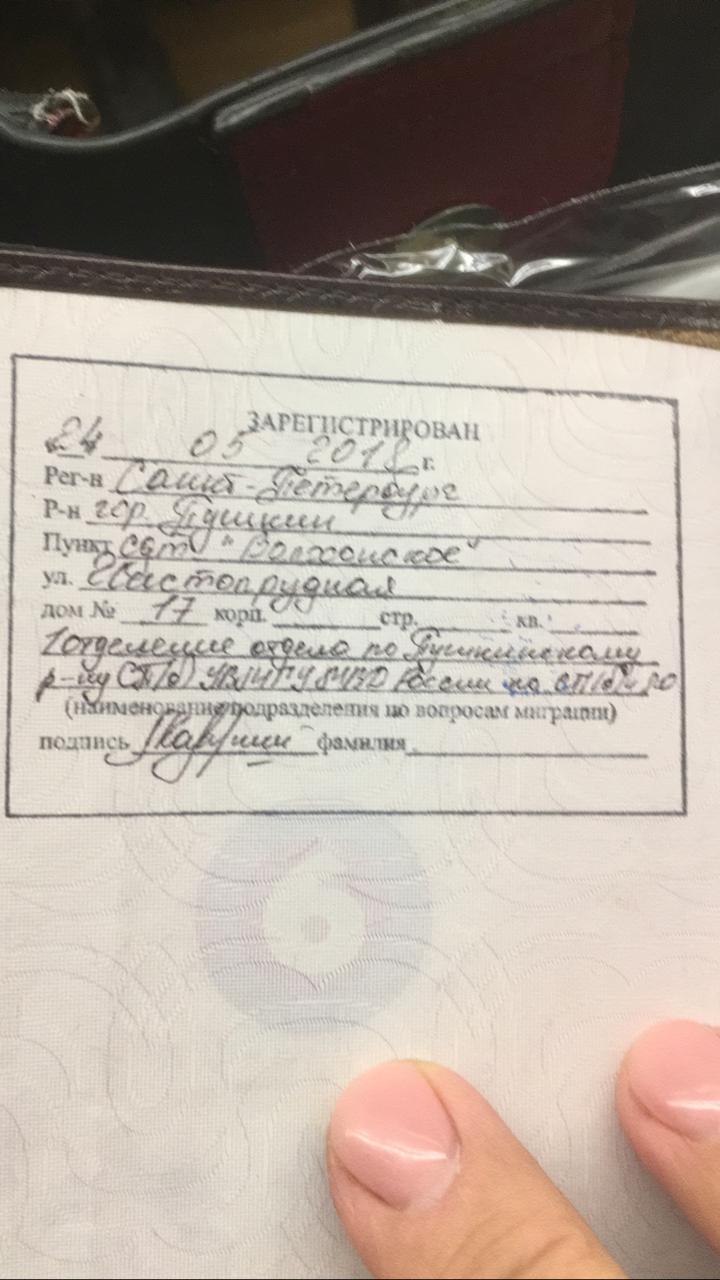 ЗАРЕГИСТРИРОВАН
24 05 2018 г.
Рег-н Санкт-Петербург
Р-н гор. Пушкин
Пункт сдт "Волхонское"
ул. Чистопрудная
дом № 17 корп. стр. кв.
1 отделение отдела по Пушкинскому
р-ну СПб УВМ ГУ МВД России по СПб и ЛО
(наименование подразделения по вопросам миграции)
подпись фамилия